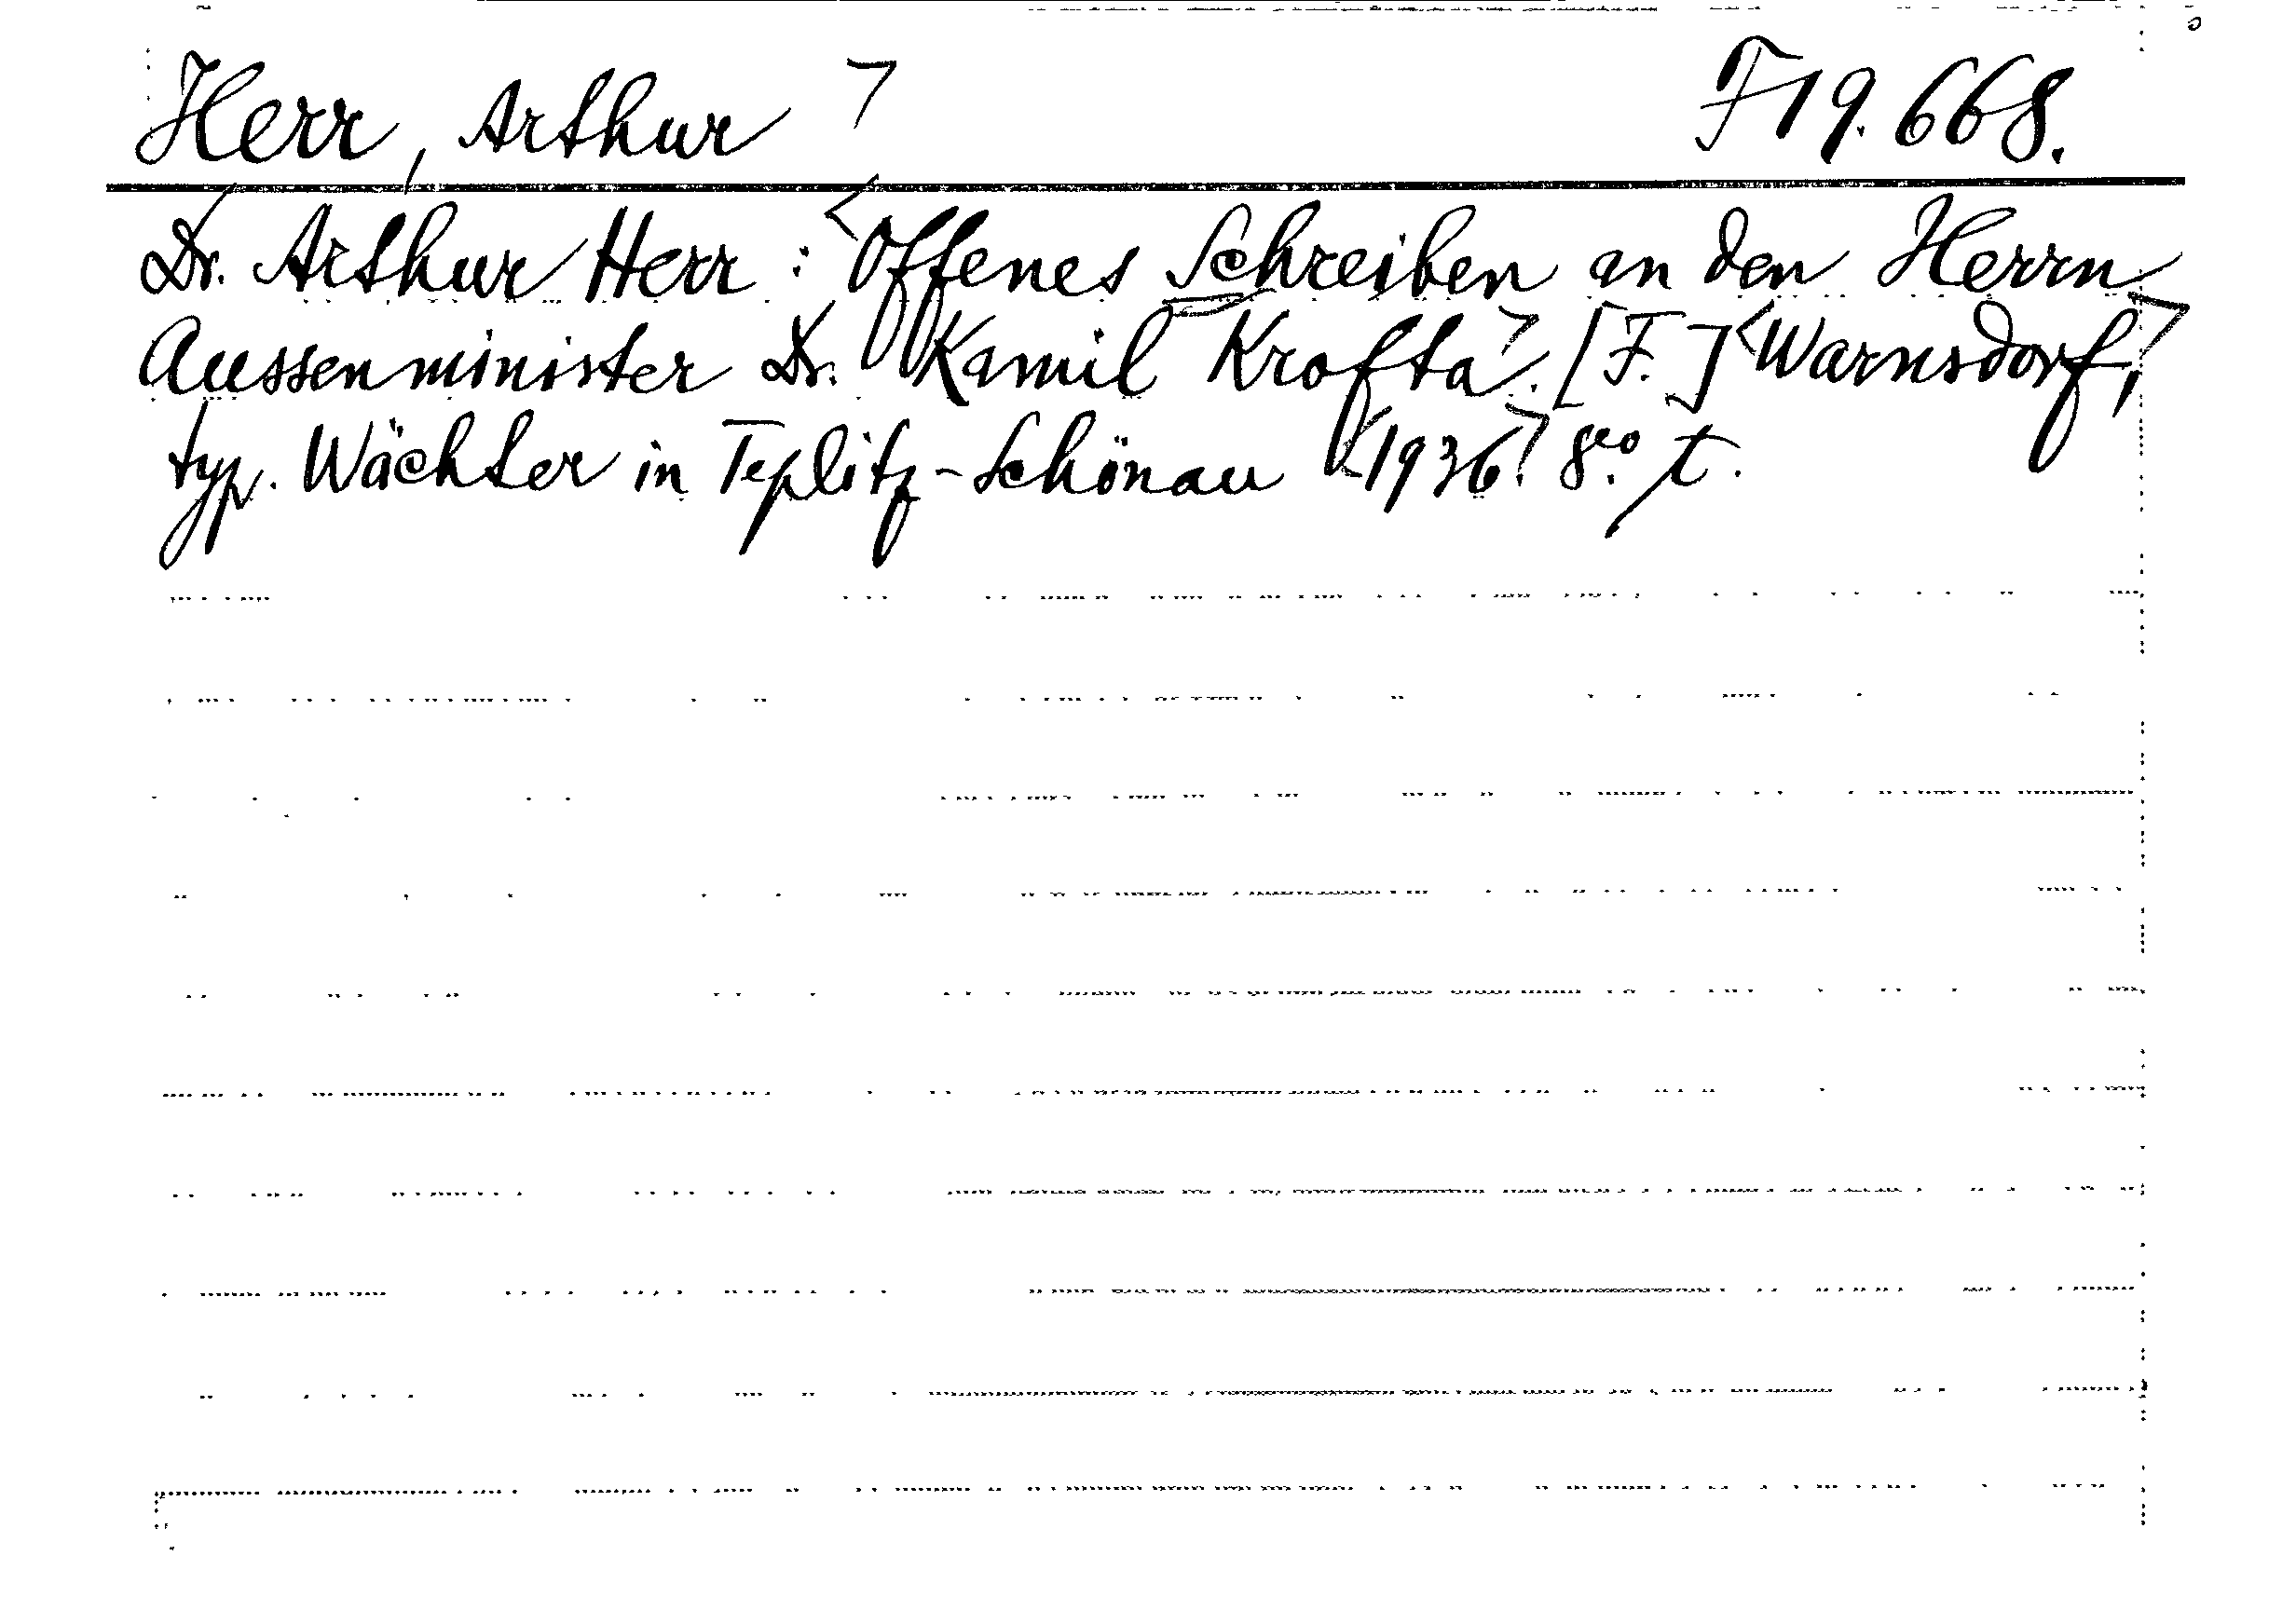 Herr, Arthur ㄱ F 19.668.
Dr. Arthur Herr: <Offenes Schreiben an den Herrn
Aussenminister Dr. Kamil Krofta>. [F.] <Warnsdorf,>
typ. Wächter in Teplitz-Schönau <1936.> 8º. t.